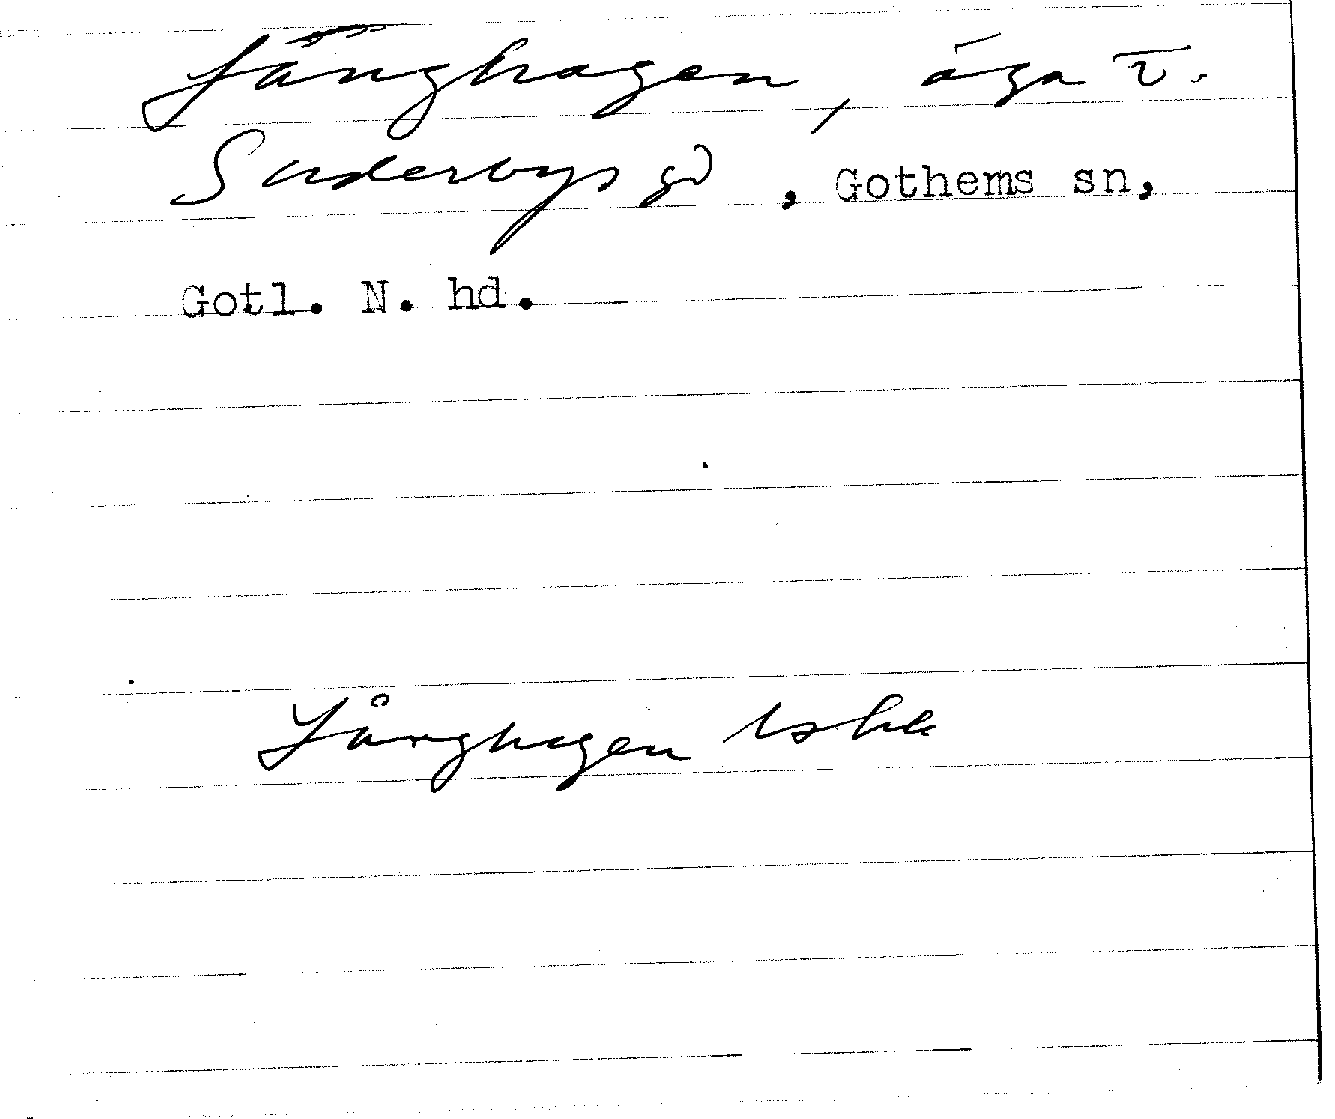 Långhagen, äga t.
Suderbys gd, Gothems sn,
Gotl. N. hd.
Långhagen